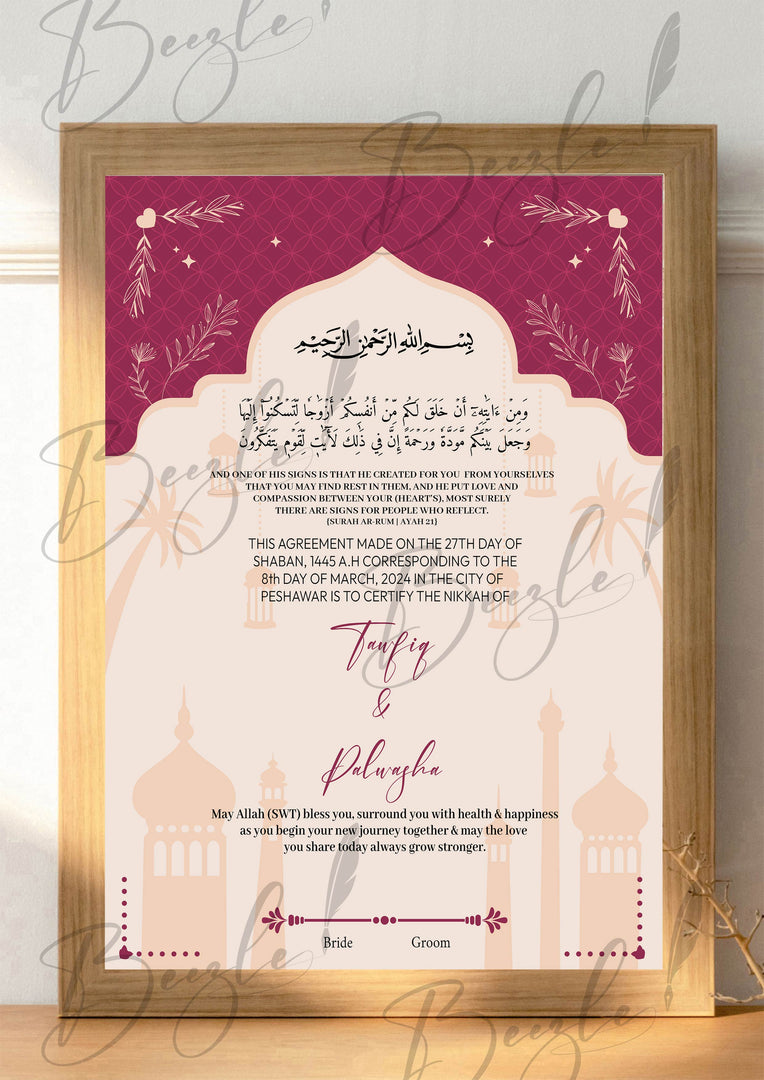 Beezle!
Beezle!
بِسْمِ اللهِ الرَّحْمٰنِ الرَّحِيْمِ
وَمِنْ ءَايَٰتِهِۦٓ أَنْ خَلَقَ لَكُم مِّنْ أَنفُسِكُمْ أَزْوَٰجًا لِّتَسْكُنُوٓا۟ إِلَيْهَا
وَجَعَلَ بَيْنَكُم مَّوَدَّةً وَرَحْمَةً إِنَّ فِي ذَٰلِكَ لَءَايَٰتٍ لِّقَوْمٍ يَتَفَكَّرُونَ
Beezle!
AND ONE OF HIS SIGNS IS THAT HE CREATED FOR YOU FROM YOURSELVES
THAT YOU MAY FIND REST IN THEM, AND HE PUT LOVE AND
COMPASSION BETWEEN YOUR (HEART'S), MOST SURELY
THERE ARE SIGNS FOR PEOPLE WHO REFLECT.
{SURAH AR-RUM | AYAH 21}
THIS AGREEMENT MADE ON THE 27TH DAY OF
SHABAN, 1445 A.H CORRESPONDING TO THE
8th DAY OF MARCH, 2024 IN THE CITY OF
PESHAWAR IS TO CERTIFY THE NIKKAH OF
Beezle!
Tawfiq
&
Palwasha
May Allah (SWT) bless you, surround you with health & happiness
as you begin your new journey together & may the love
you share today always grow stronger.
Bride Groom
Beezle!
Beezle!